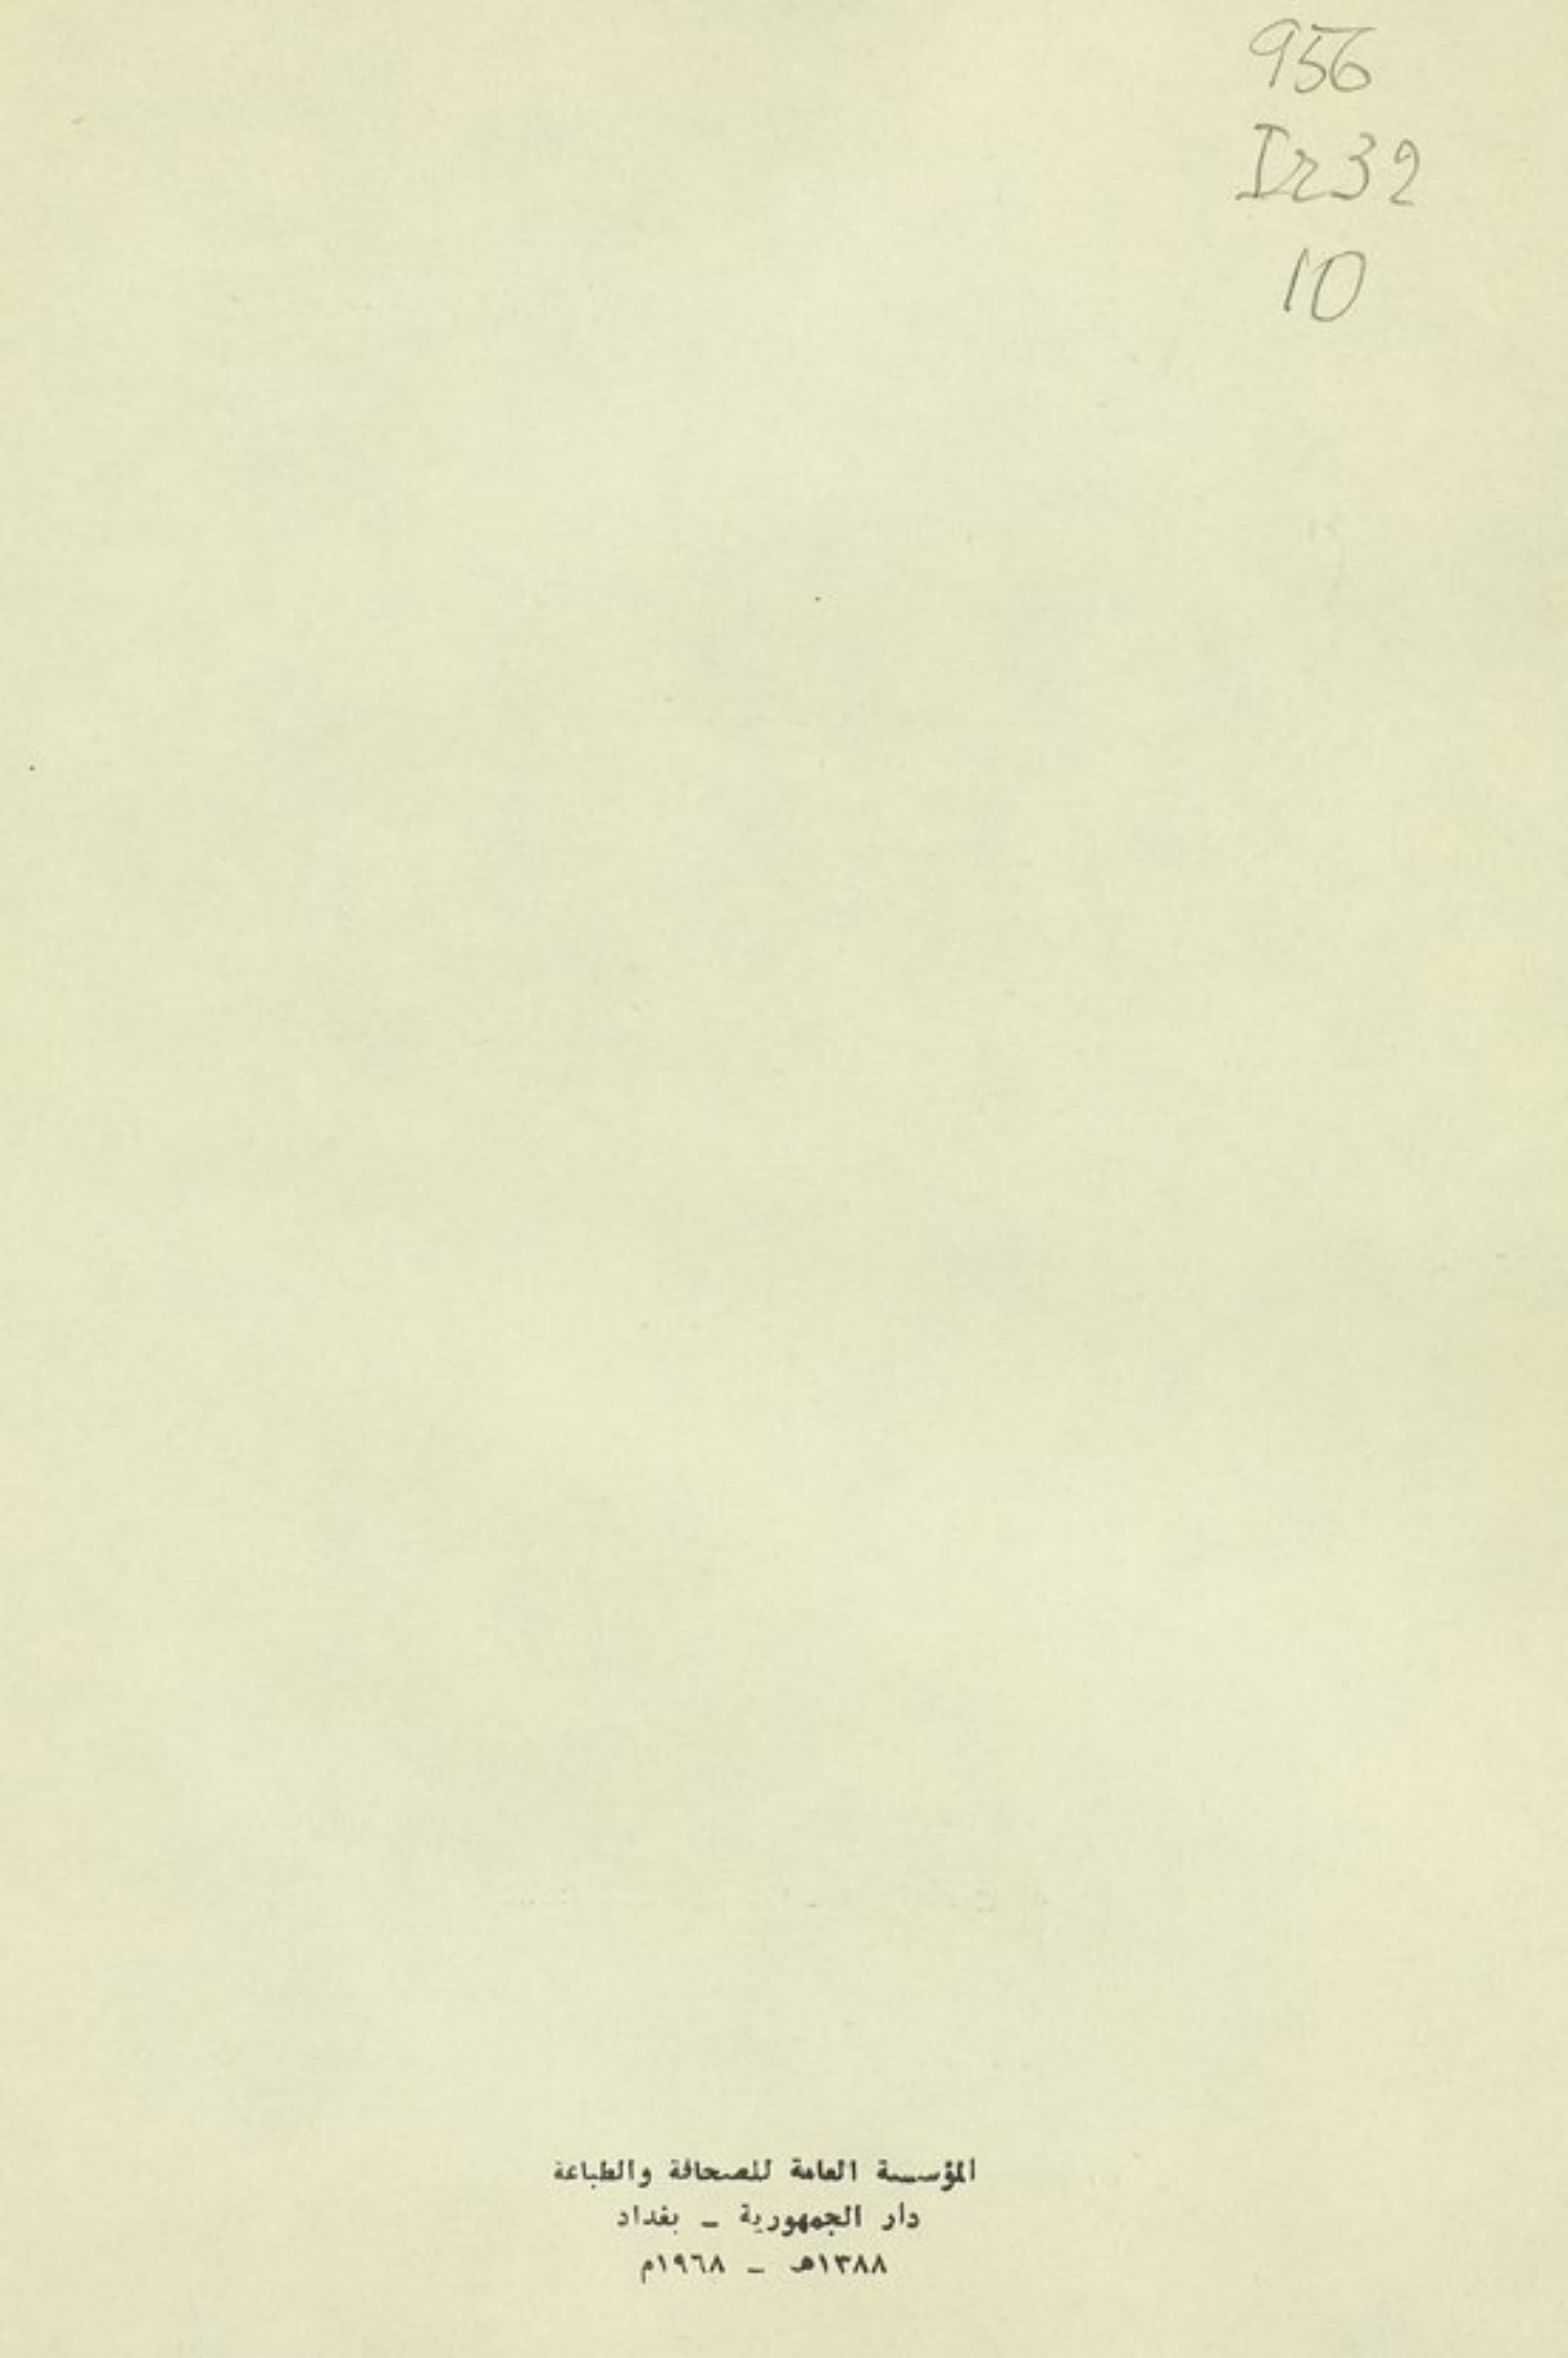 956
Ir32
10
المؤسسة العامة للصحافة والطباعة
دار الجمهورية - بغداد
١٣٨٨هـ - ١٩٦٨م